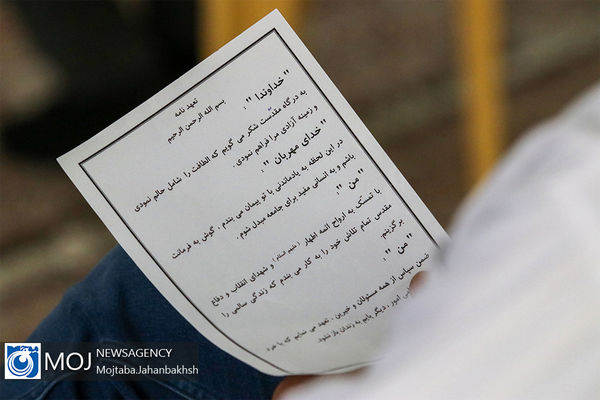 تعهد نامه
بسم الله الرحمن الرحیم
" خداوندا " .
به درگاه مقدّست شکر می گویم که الطافت را شامل حالم نمودی
و زمینه آزادی مرا فراهم نمودی .
" خدای مهربان " .
در این لحظه به یادماندنی با تو پیمان می بندم . گوش به فرمانت
باشم و به انسانی مفید برای جامعه مبدل شوم .
" من " .
با تمسّک به ارواح ائمه اطهار (علیهم السلام) و شهدای انقلاب و دفاع
مقدس تمام تلاش خود را به کار می بندم که زندگی سالمی را
برگزینم .
" من " .
ضمن سپاس از همه مسئولان و خیرین ، تعهد می نمایم که با
امور ، دیگر پایم به زندان باز نشود .
MOJ NEWSAGENCY
Mojtaba.Jahanbakhsh